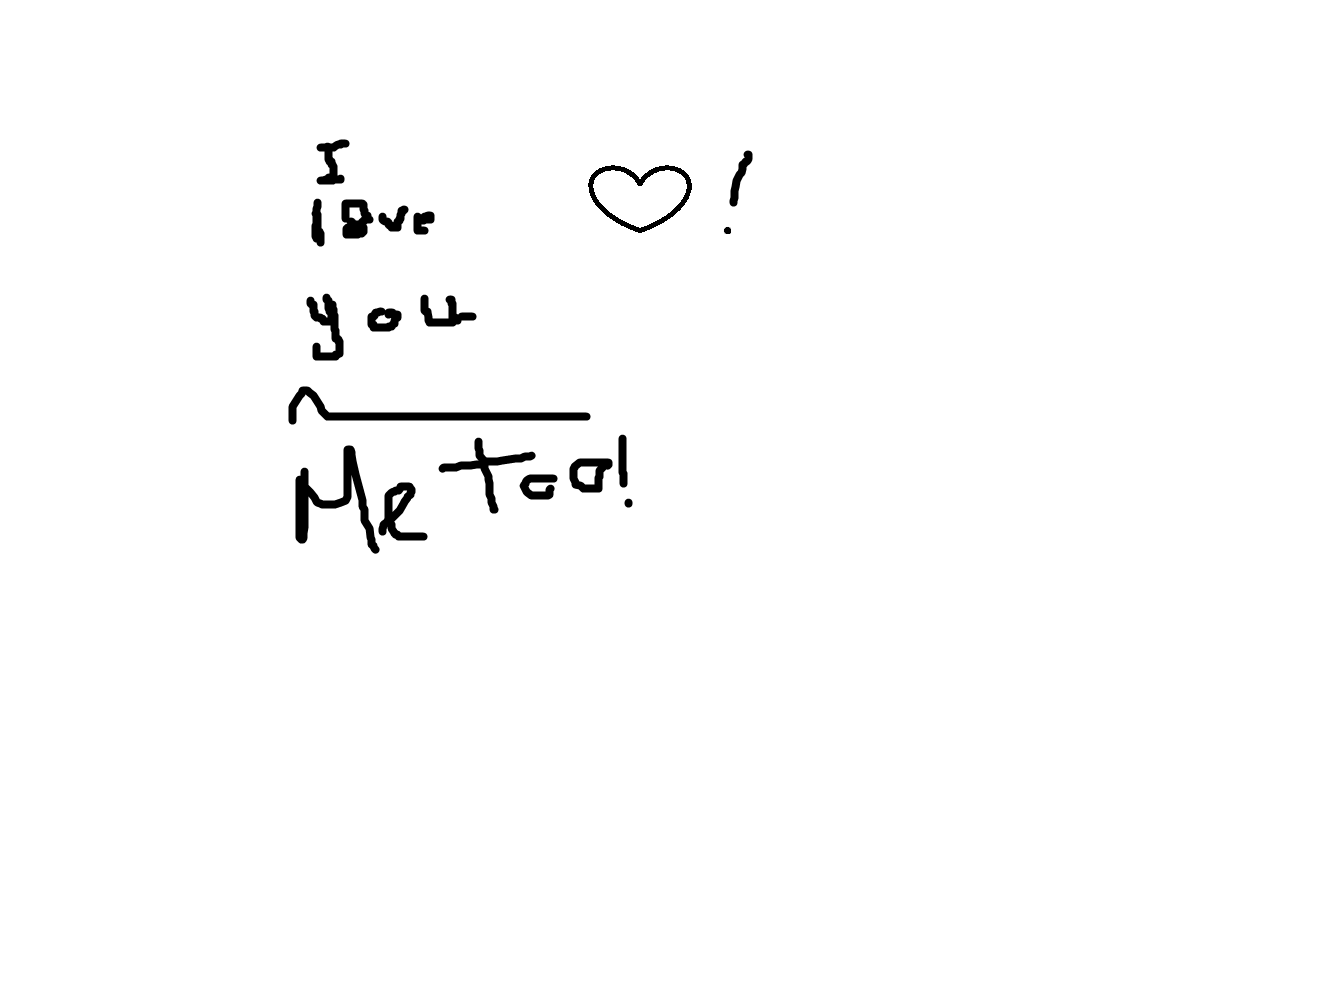 I
love
you
!
Me too!